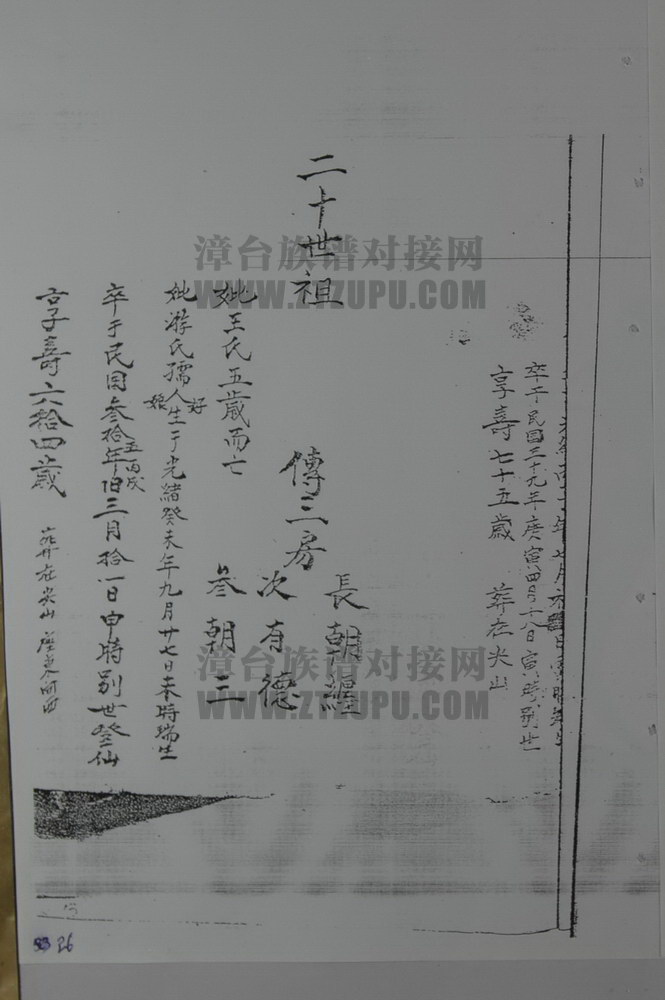 卒于民國三十九年庚寅四月十八日寅時別世
享壽七十五歲 葬在尖山
二十世祖
傳三房
長朝纏
次有德
叁朝三
妣王氏五歲而亡
妣游氏孺人生于光緒癸未年九月廿七日未時瑞生
娘好
卒于民國叁拾五年丙戌旧三月拾一日申時別世登仙
享壽六拾四歲 葬在尖山
漳台族谱对接网
WWW.ZTZUPU.COM
漳台族谱对接网
WWW.ZTZUPU.COM
26